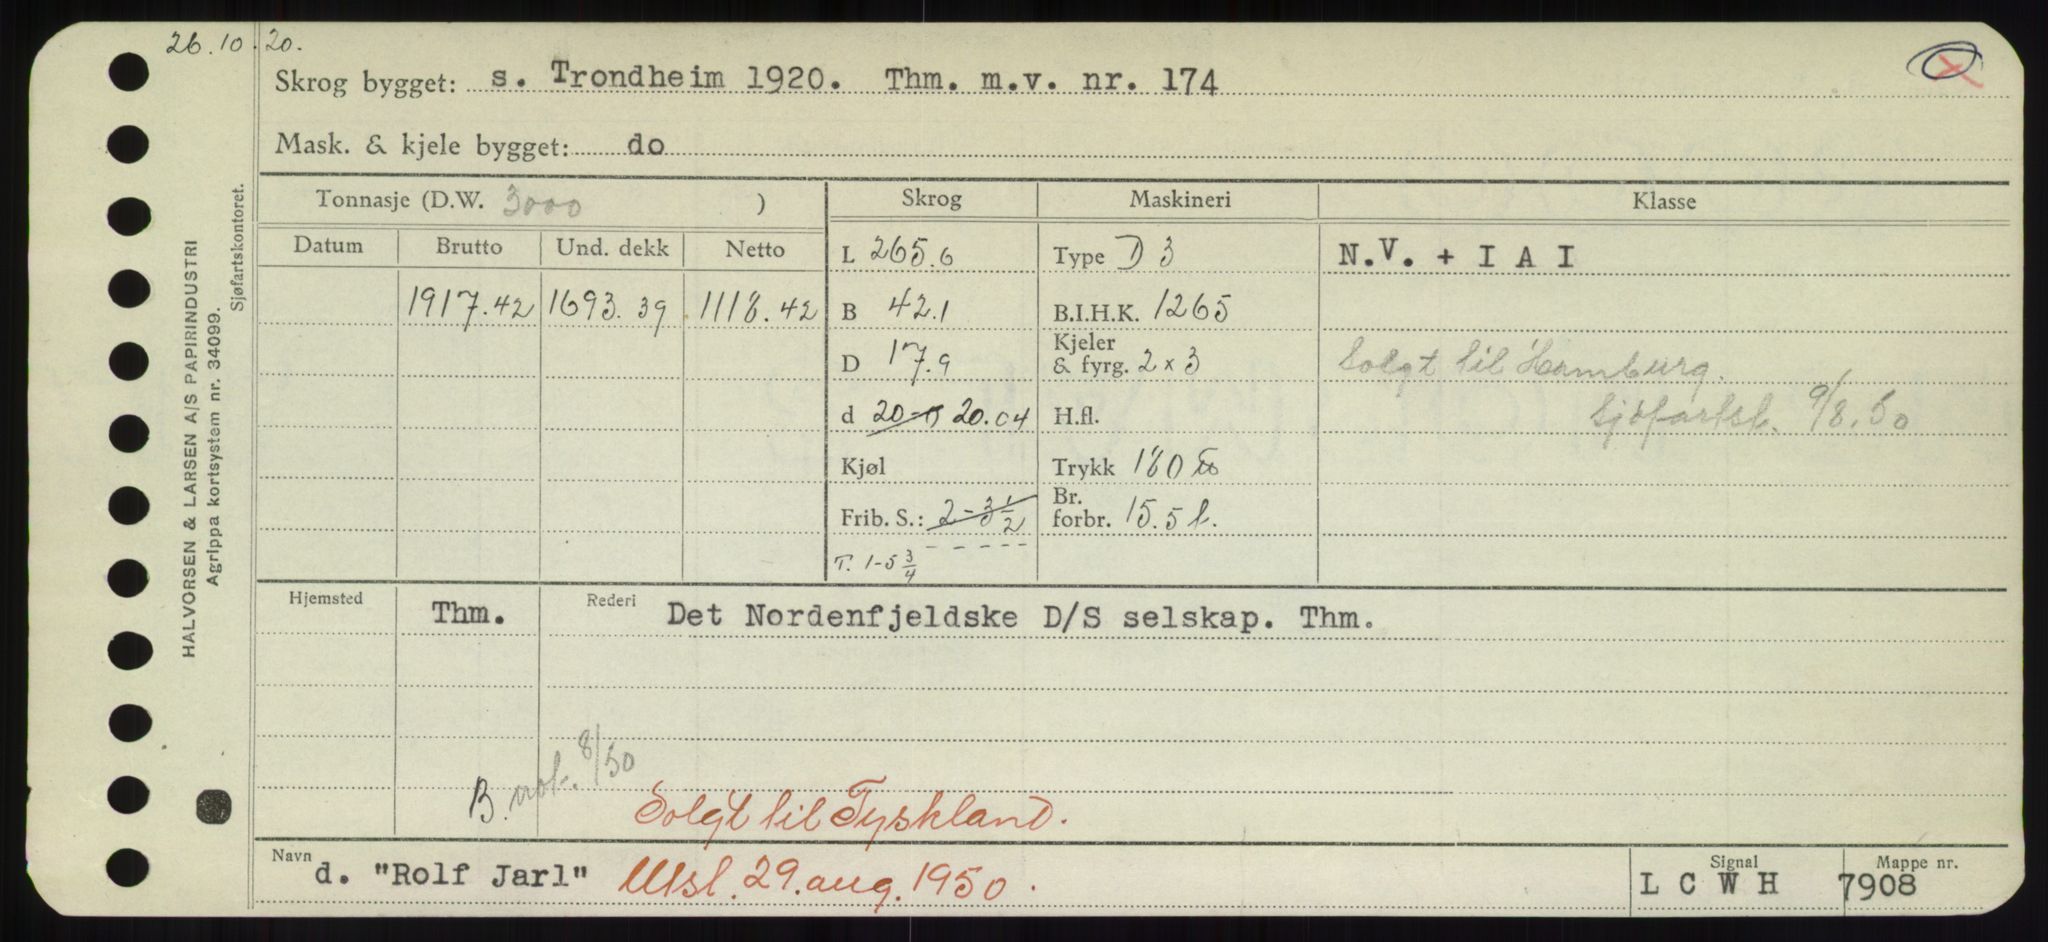 26.10.20.
Skrog bygget: s. Trondheim 1920. Thm. m.v. nr. 174
Mask. & kjele bygget: do
HALVORSEN & LARSEN A/S PAPIRINDUSTRI
Agrippa kortsystem nr. 34099.
Sjøfartskontoret.
Tonnasje (D.W. 3000 )
Skrog
Maskineri
Klasse
Datum Brutto Und. dekk Netto
L 265.6
Type D 3
N.V. + I A I
1917.42 1693.39 1118.42
B 42.1
B.I.H.K. 1265
D 17.9
Kjeler
& fyrg. 2 x 3
Solgt til Hamburg.
Sjöfartst. 9/8.50
d 20-0 20.04
H.fl.
Kjøl
Trykk 180 lb
Frib. S.: 2-3 1/2
Br.
forbr. 15.5 t.
T. 1-5 3/4
Hjemsted Thm.
Rederi Det Nordenfjeldske D/S selskap. Thm.
B. not. 8/50
Solgt til Tyskland.
Navn d. "Rolf Jarl" Utsl. 29. aug. 1950.
Signal L C W H
Mappe nr. 7908